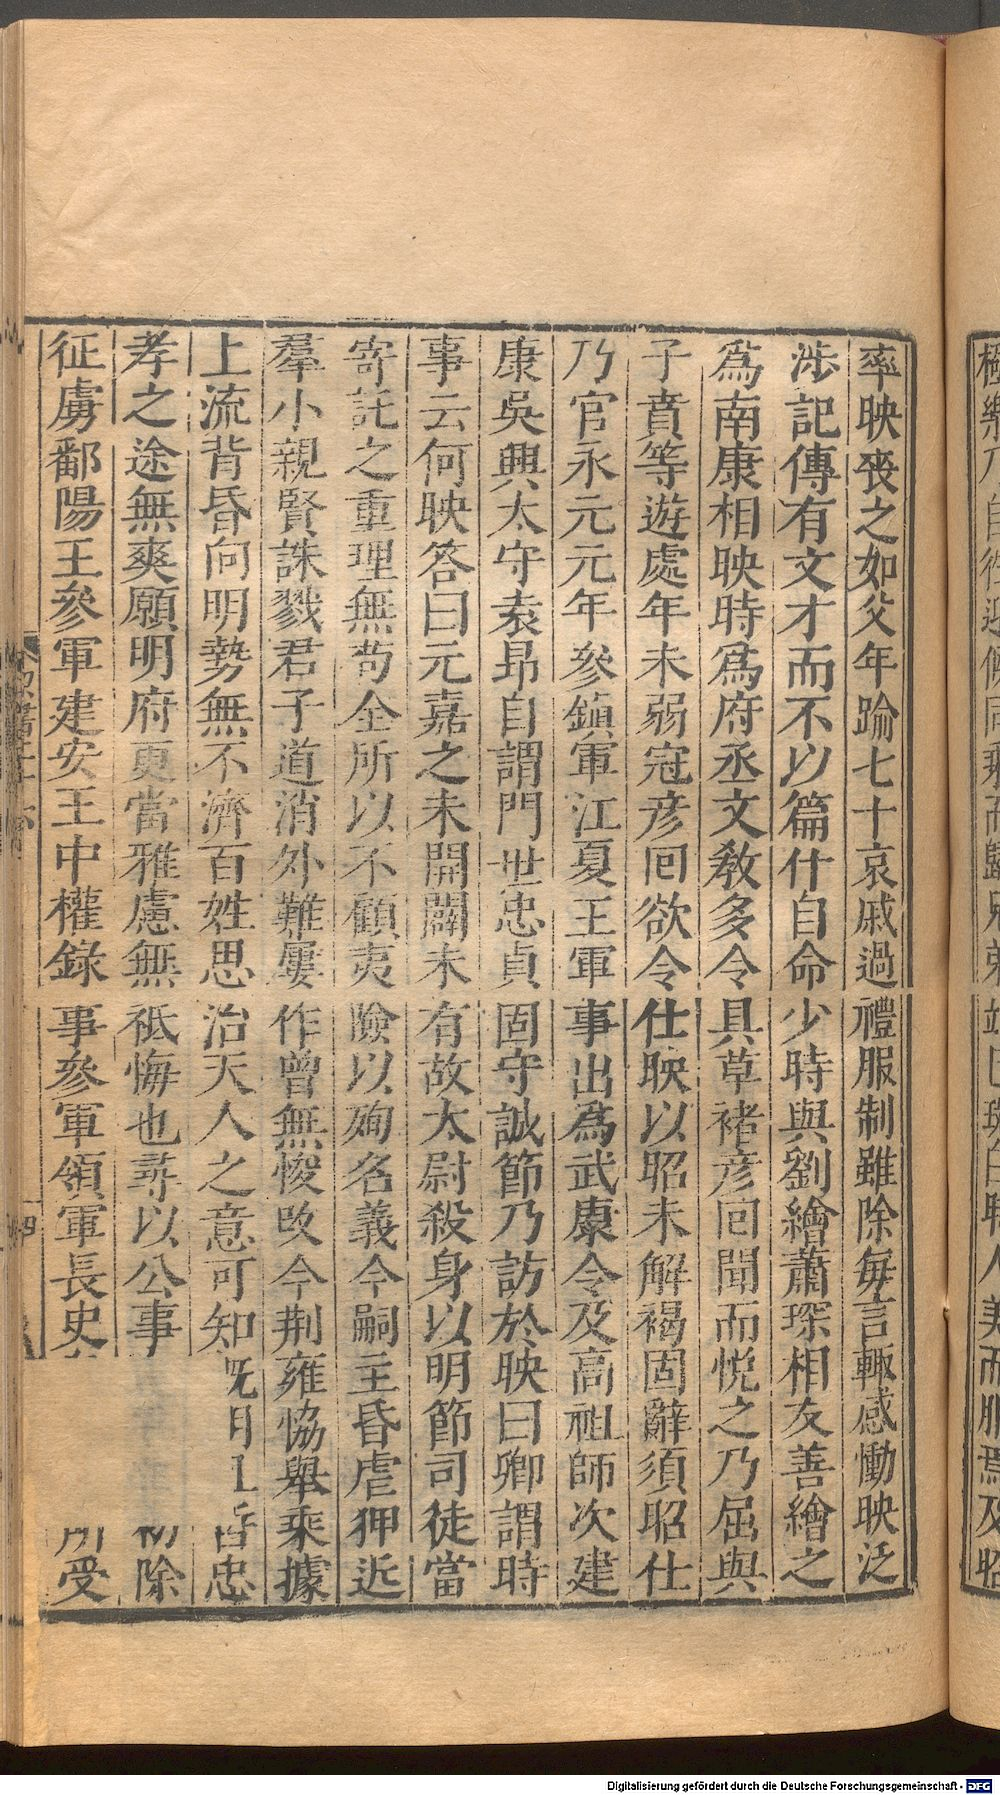 率映喪之如父年踰七十哀戚過禮服制雖除每言輒感慟映泛
涉記傳有文才而不以篇什自命少時與劉繪蕭琛相友善繪之
爲南康相映時爲府丞文敎多令具草褚彦囘聞而悅之乃屈與
子賁等遊處年未弱冠彦囘欲令仕映以昭未解褐固辭須昭仕
乃官永元元年參鎭軍江夏王軍事出爲武康令及高祖師次建
康吳興太守袁昂自謂門世忠貞固守誠節乃訪於映曰卿謂時
事云何映答曰元嘉之末開闢未有故太尉殺身以明節司徒當
寄託之重理無苟全所以不顧夷險以殉名義今嗣主昏虐狎近
羣小親賢誅戮君子道消外難屢作曾無悛改今荆雍協舉乘據
上流背昏向明勢無不濟百姓思治天人之意可知旣明且哲忠
孝之途無爽願明府更當雅慮無祗悔也尋以公事 除
征虜鄱陽王參軍建安王中權錄事參軍領軍長史 所受
Digitalisierung gefördert durch die Deutsche Forschungsgemeinschaft - DFG